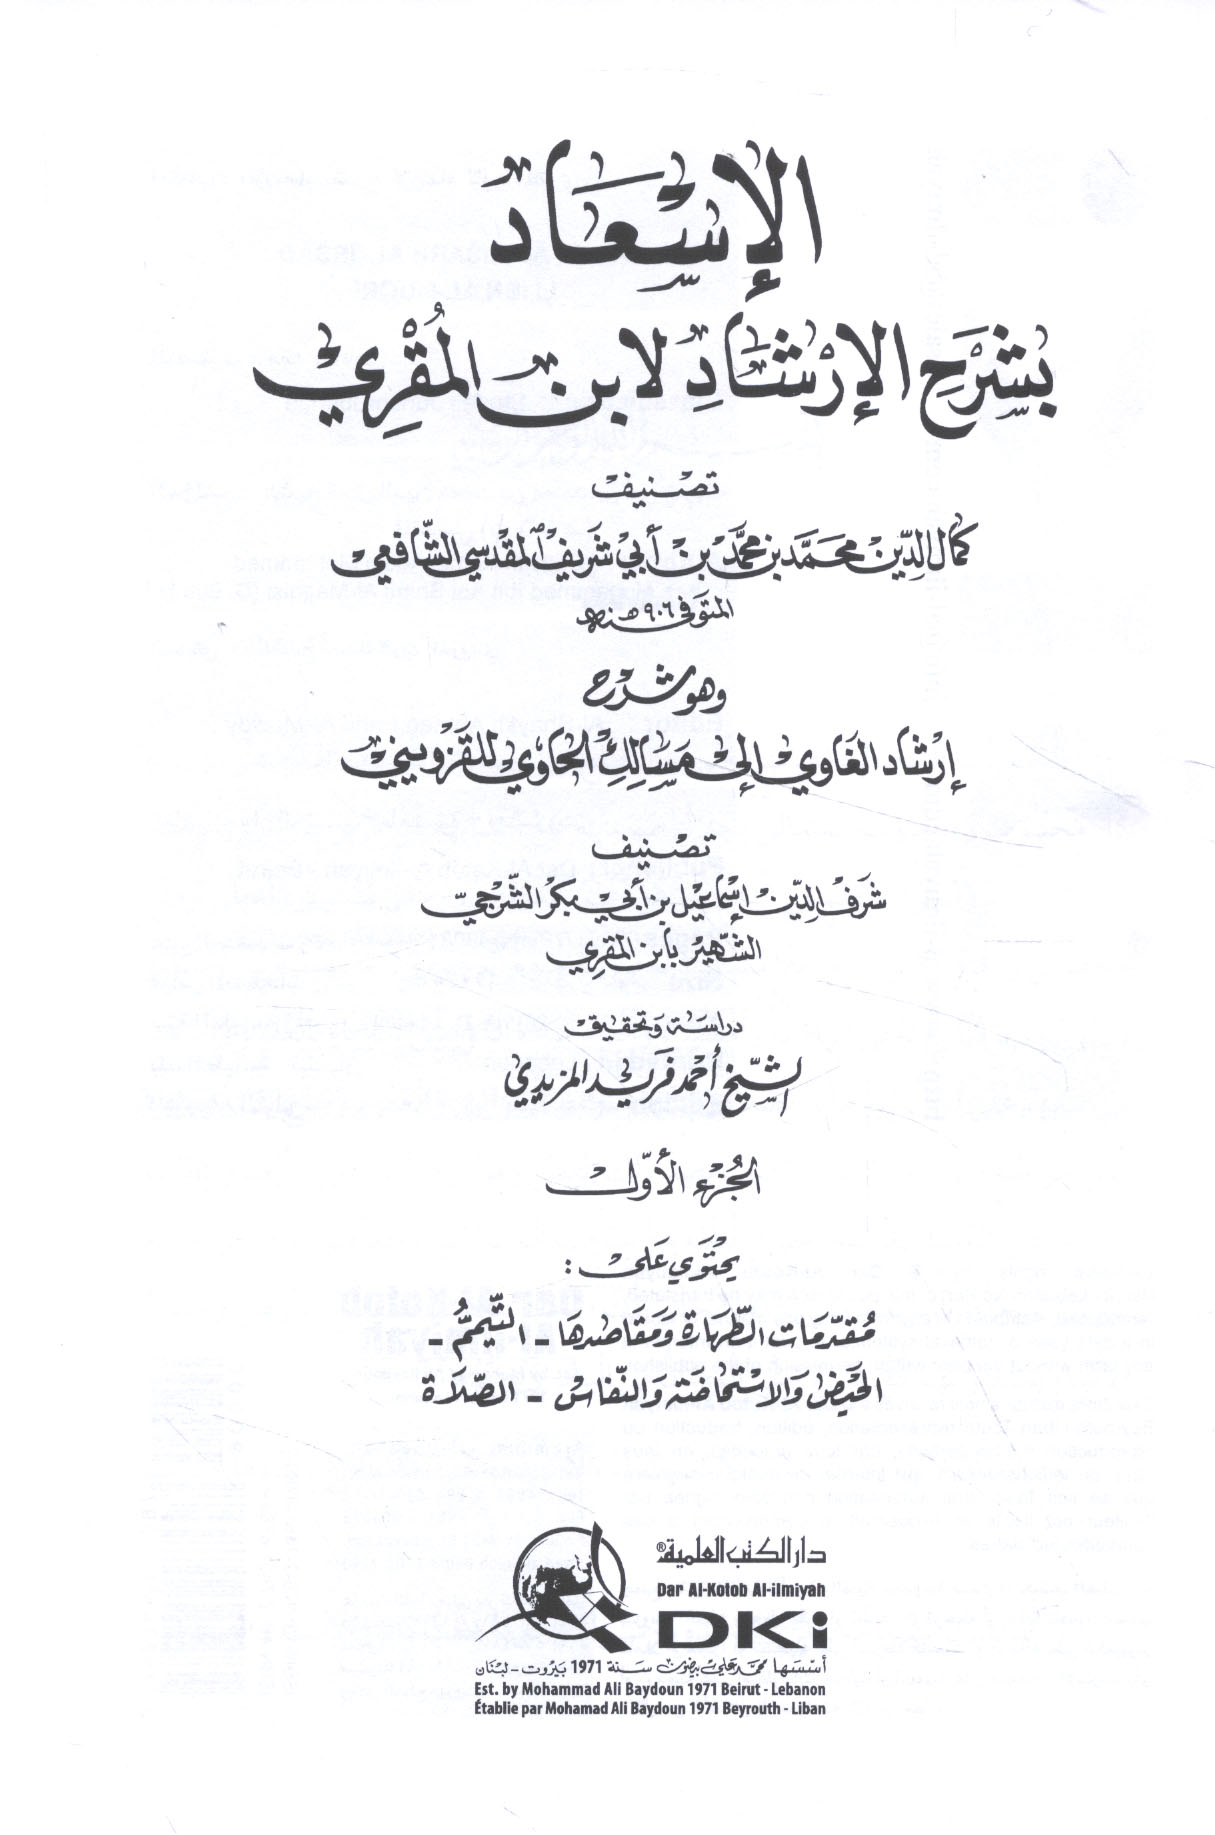 الإسْعَاد
بشَرْحِ الإرْشَادِ لابن المُقْرِي
تصنيف
كمال الدّين محمَّد بن محمَّد بن أبي شريف المقدسي الشّافعي
المتوَفى ٩٠٦ هـ سنة
وهو شرح
إرْشاد الغَاوي إلى مَسَالِك الحَاوي للقزويني
تصنيف
شرَف الدّين إسماعيل بن أبي بكر الشّرجي
الشّهير بابن المقرِي
دراسة وَتحقيق
الشّيخ أحمد فَريد المزيدي
الجُزء الأوّل
يحتَوي عَلى :
مُقدّمات الطّهارة وَمَقاصدها - التّيممُّ -
الحَيض وَالاستحَاضَة وَالنّفاس - الصّلَاة
دار الكتب العلمية®
Dar Al-Kotob Al-ilmiyah
DKi
أسسها محمد علي بيضون سنة 1971 بيروت - لبنان
Est. by Mohammad Ali Baydoun 1971 Beirut - Lebanon
Établie par Mohamad Ali Baydoun 1971 Beyrouth - Liban